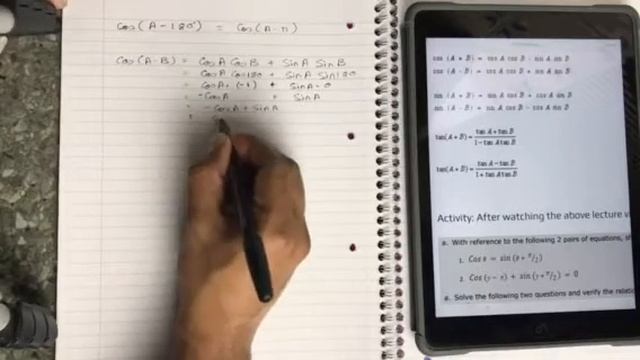 Cos(A-180°) = Cos(A-π)
Cos(A-B) = CosA CosB + SinA SinB
= CosA Cos180 + SinA Sin180
= CosA · (-1) + SinA · 0
= -CosA + SinA
= -CosA + SinA
=
cos (A + B) = cos A cos B - sin A sin B
cos (A - B) = cos A cos B + sin A sin B
sin (A + B) = sin A cos B + cos A sin B
sin (A - B) = sin A cos B - cos A sin B
tan(A + B) = (tan A + tan B)/(1 - tan A tan B)
tan(A + B) = (tan A - tan B)/(1 + tan A tan B)
Activity: After watching the above lecture v
a. With reference to the following 2 pairs of equations,
1. Cos x = sin (x + π/2)
2. Cos (y - x) + sin (y + π/2) = 0
e. Solve the following two questions and verify the relatio